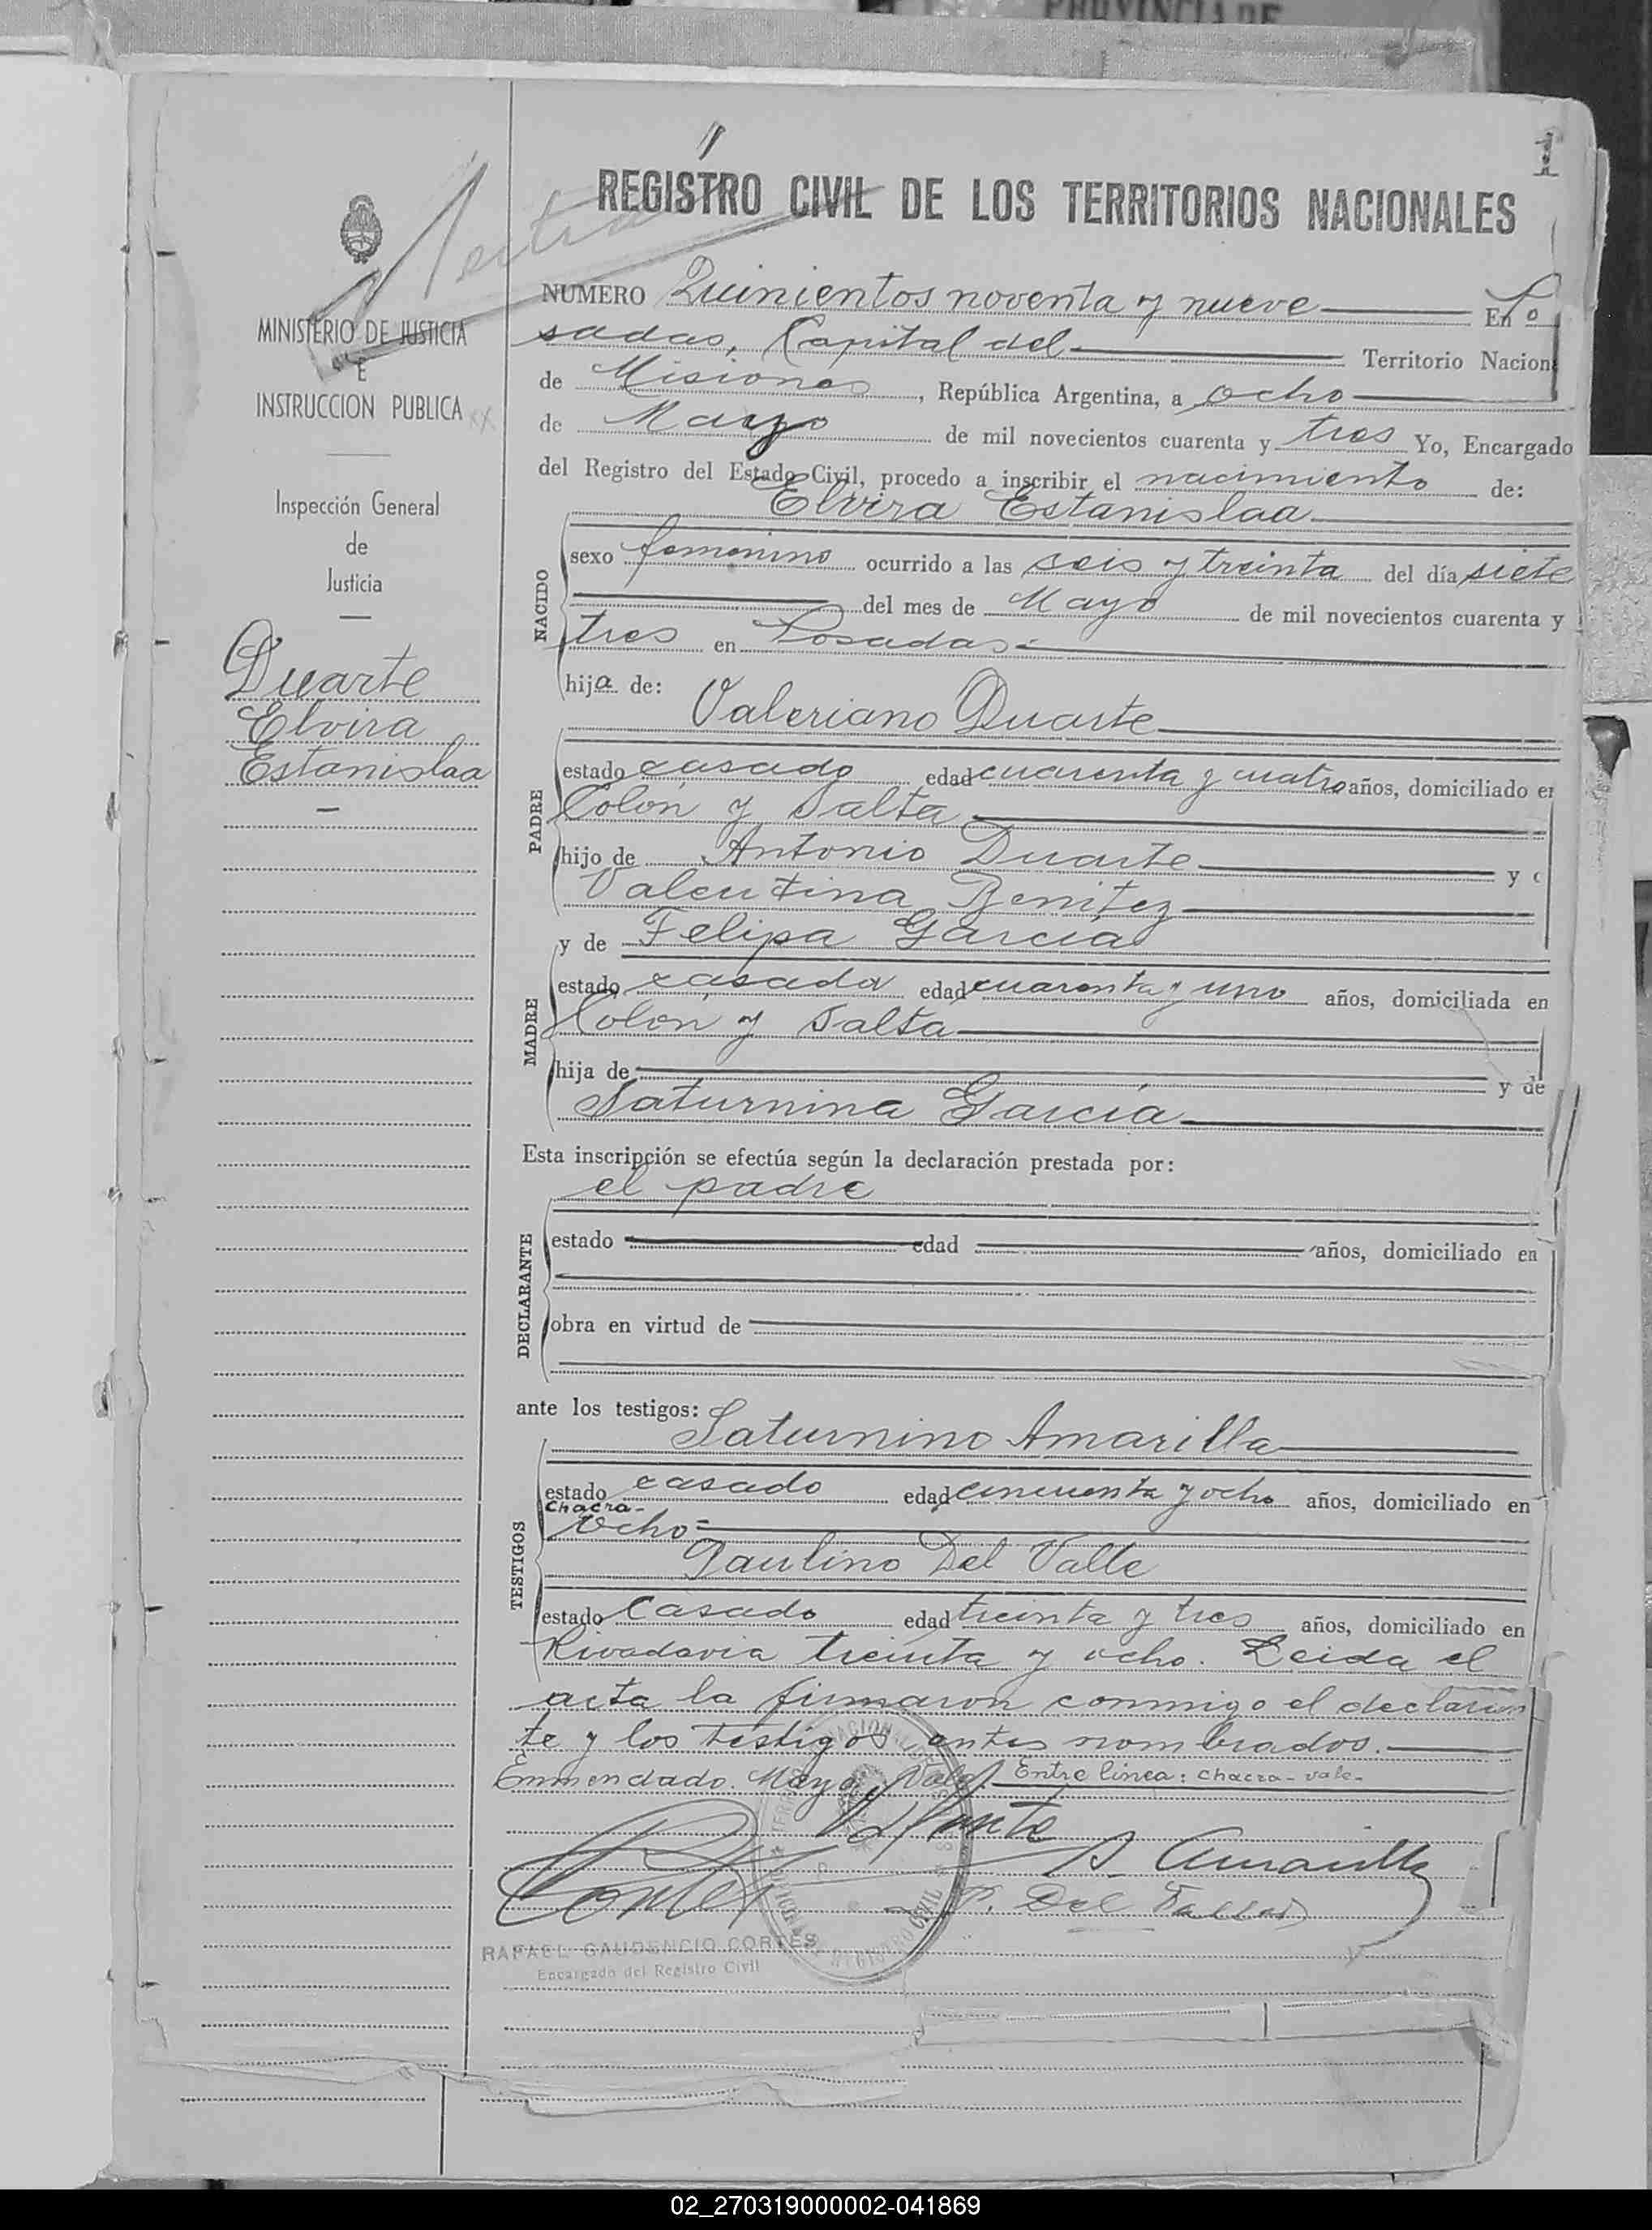 PROVINCIA DE
1
REGISTRO CIVIL DE LOS TERRITORIOS NACIONALES
MINISTERIO DE JUSTICIA
E
INSTRUCCION PUBLICA
Inspección General
de
Justicia
Duarte
Elvira
Estanislaa
NUMERO Quinientos noventa y nueve En Po
sadas, Capital del Territorio Nacion
de Misiones, República Argentina, a ocho
de Mayo de mil novecientos cuarenta y tres Yo, Encargado
del Registro del Estado Civil, procedo a inscribir el nacimiento de:
Elvira Estanislaa
NACIDO
sexo femenino ocurrido a las seis y treinta del día siete
del mes de Mayo de mil novecientos cuarenta y
tres en Posadas.
hija de:
Valeriano Duarte
PADRE
estado casado edad cuarenta y cuatro años, domiciliado en
Colón y Salta
hijo de Antonio Duarte y
Valentina Benitez
y de Felipa García
MADRE
estado casada edad cuarenta y uno años, domiciliada en
Colón y Salta
hija de y de
Saturnina García
Esta inscripción se efectúa según la declaración prestada por:
el padre
DECLARANTE
estado edad años, domiciliado en
obra en virtud de
ante los testigos:
Saturnino Amarilla
TESTIGOS
estado casado edad cincuenta y ocho años, domiciliado en
Chacra-
ocho
Paulino Del Valle
estado Casado edad treinta y tres años, domiciliado en
Rivadavia treinta y ocho. Leida el
acta la firmaron conmigo el declaran
te y los testigos antes nombrados.
Enmendado. Mayo. Vale. Entre linea: chacra - vale-
S. Amarilla
Cortes
P. Del Valle
RAFAEL GAUDENCIO CORTES
Encargado del Registro Civil
REGISTRO CIVIL
02_270319000002-041869